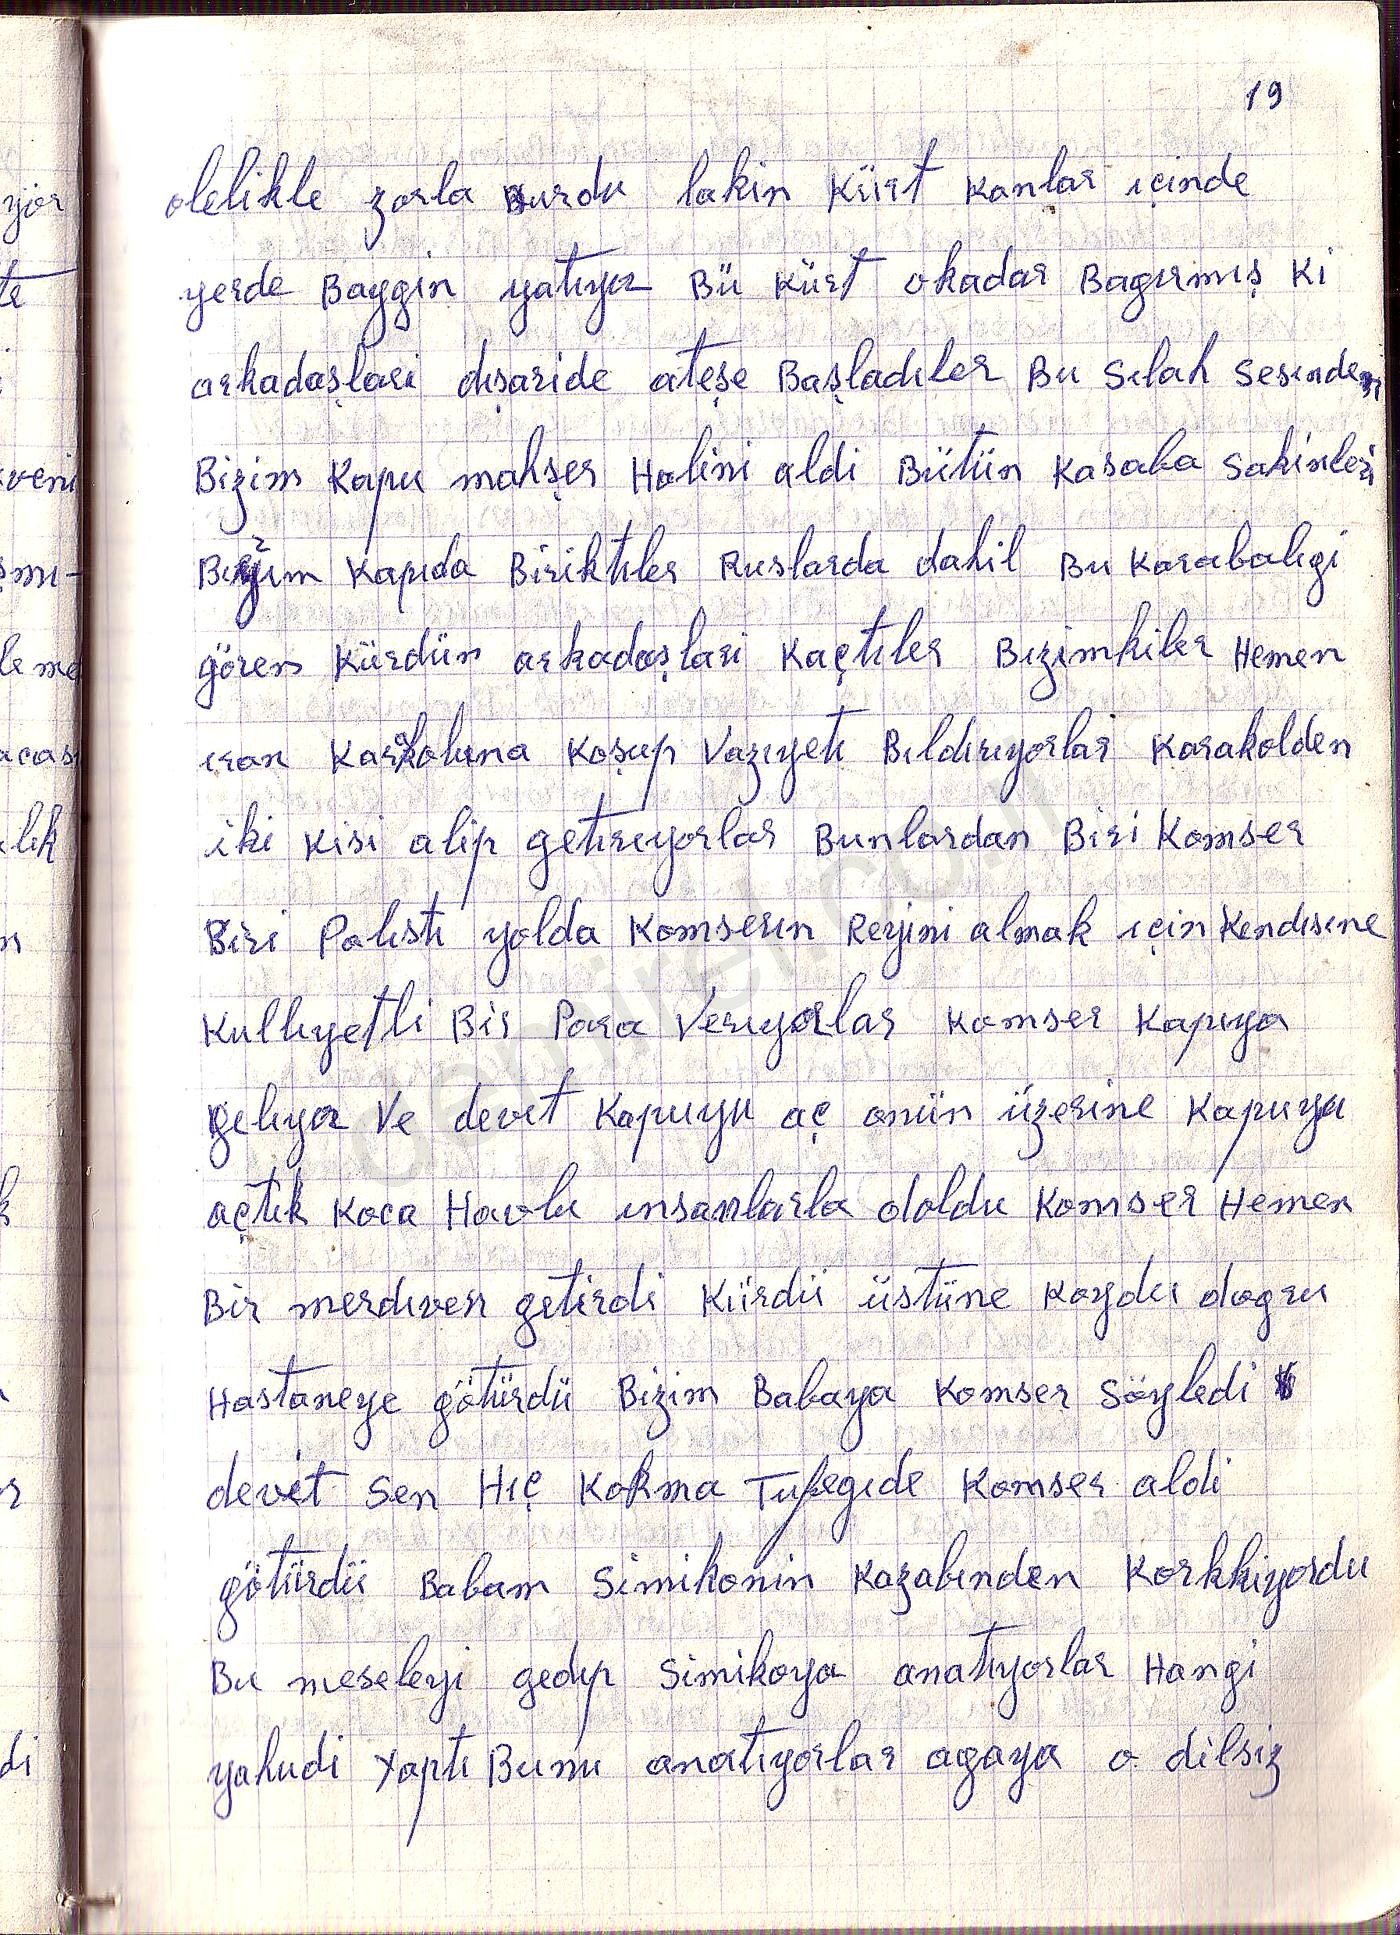 19
olelikle zorla durdu lakin Kürt Kanlar içinde
yerde Baygin yatıyor Bü Kürt okadar Bagırmış Ki
arkadaşlari dışaride ateşe Başladıler Bu Sılah Sesınden
Bizim Kapu mahşer Halini aldi Bütün Kasaba Sakinleri
Bizim Kapıda Biriktıler Ruslarda dahil Bu Karabalıgi
gören Kürdün arkadaşlari Kaçtıler Bızimkiler Hemen
ıran Karakoluna Koşup Vazıyetı Bıldırıyorlar Karakolden
iki Kisi alip getırıyorlar Bunlardan Biri Komser
Biri Polıstı yolda Komserın Reyini almak ıçin Kendısıne
Kullıyetli Bir Para Verıyorlar Komser Kapıya
gelıyor Ve devıt Kapuyu aç onün üzerine Kapuyu
açtık Koca Havlu ınsanlarla doldu Komser Hemen
Bir merdıven getirdi Kürdü üstüne Koydu dogru
Hastaneye götürdü Bizim Babaya Komser Söyledi
devit Sen Hıç Kokma Tufegıde Komser aldi
götürdü Babam Simikonin Kazabınden Korkkiyordu
Bu meseleyi gedıp Simikoya anatıyorlar Hangi
yahudi Yaptı Bunu anatıyorlar agaya o dilsiz
yör
veni
şmı-
le me
acas
lık
di
demirel.co.il